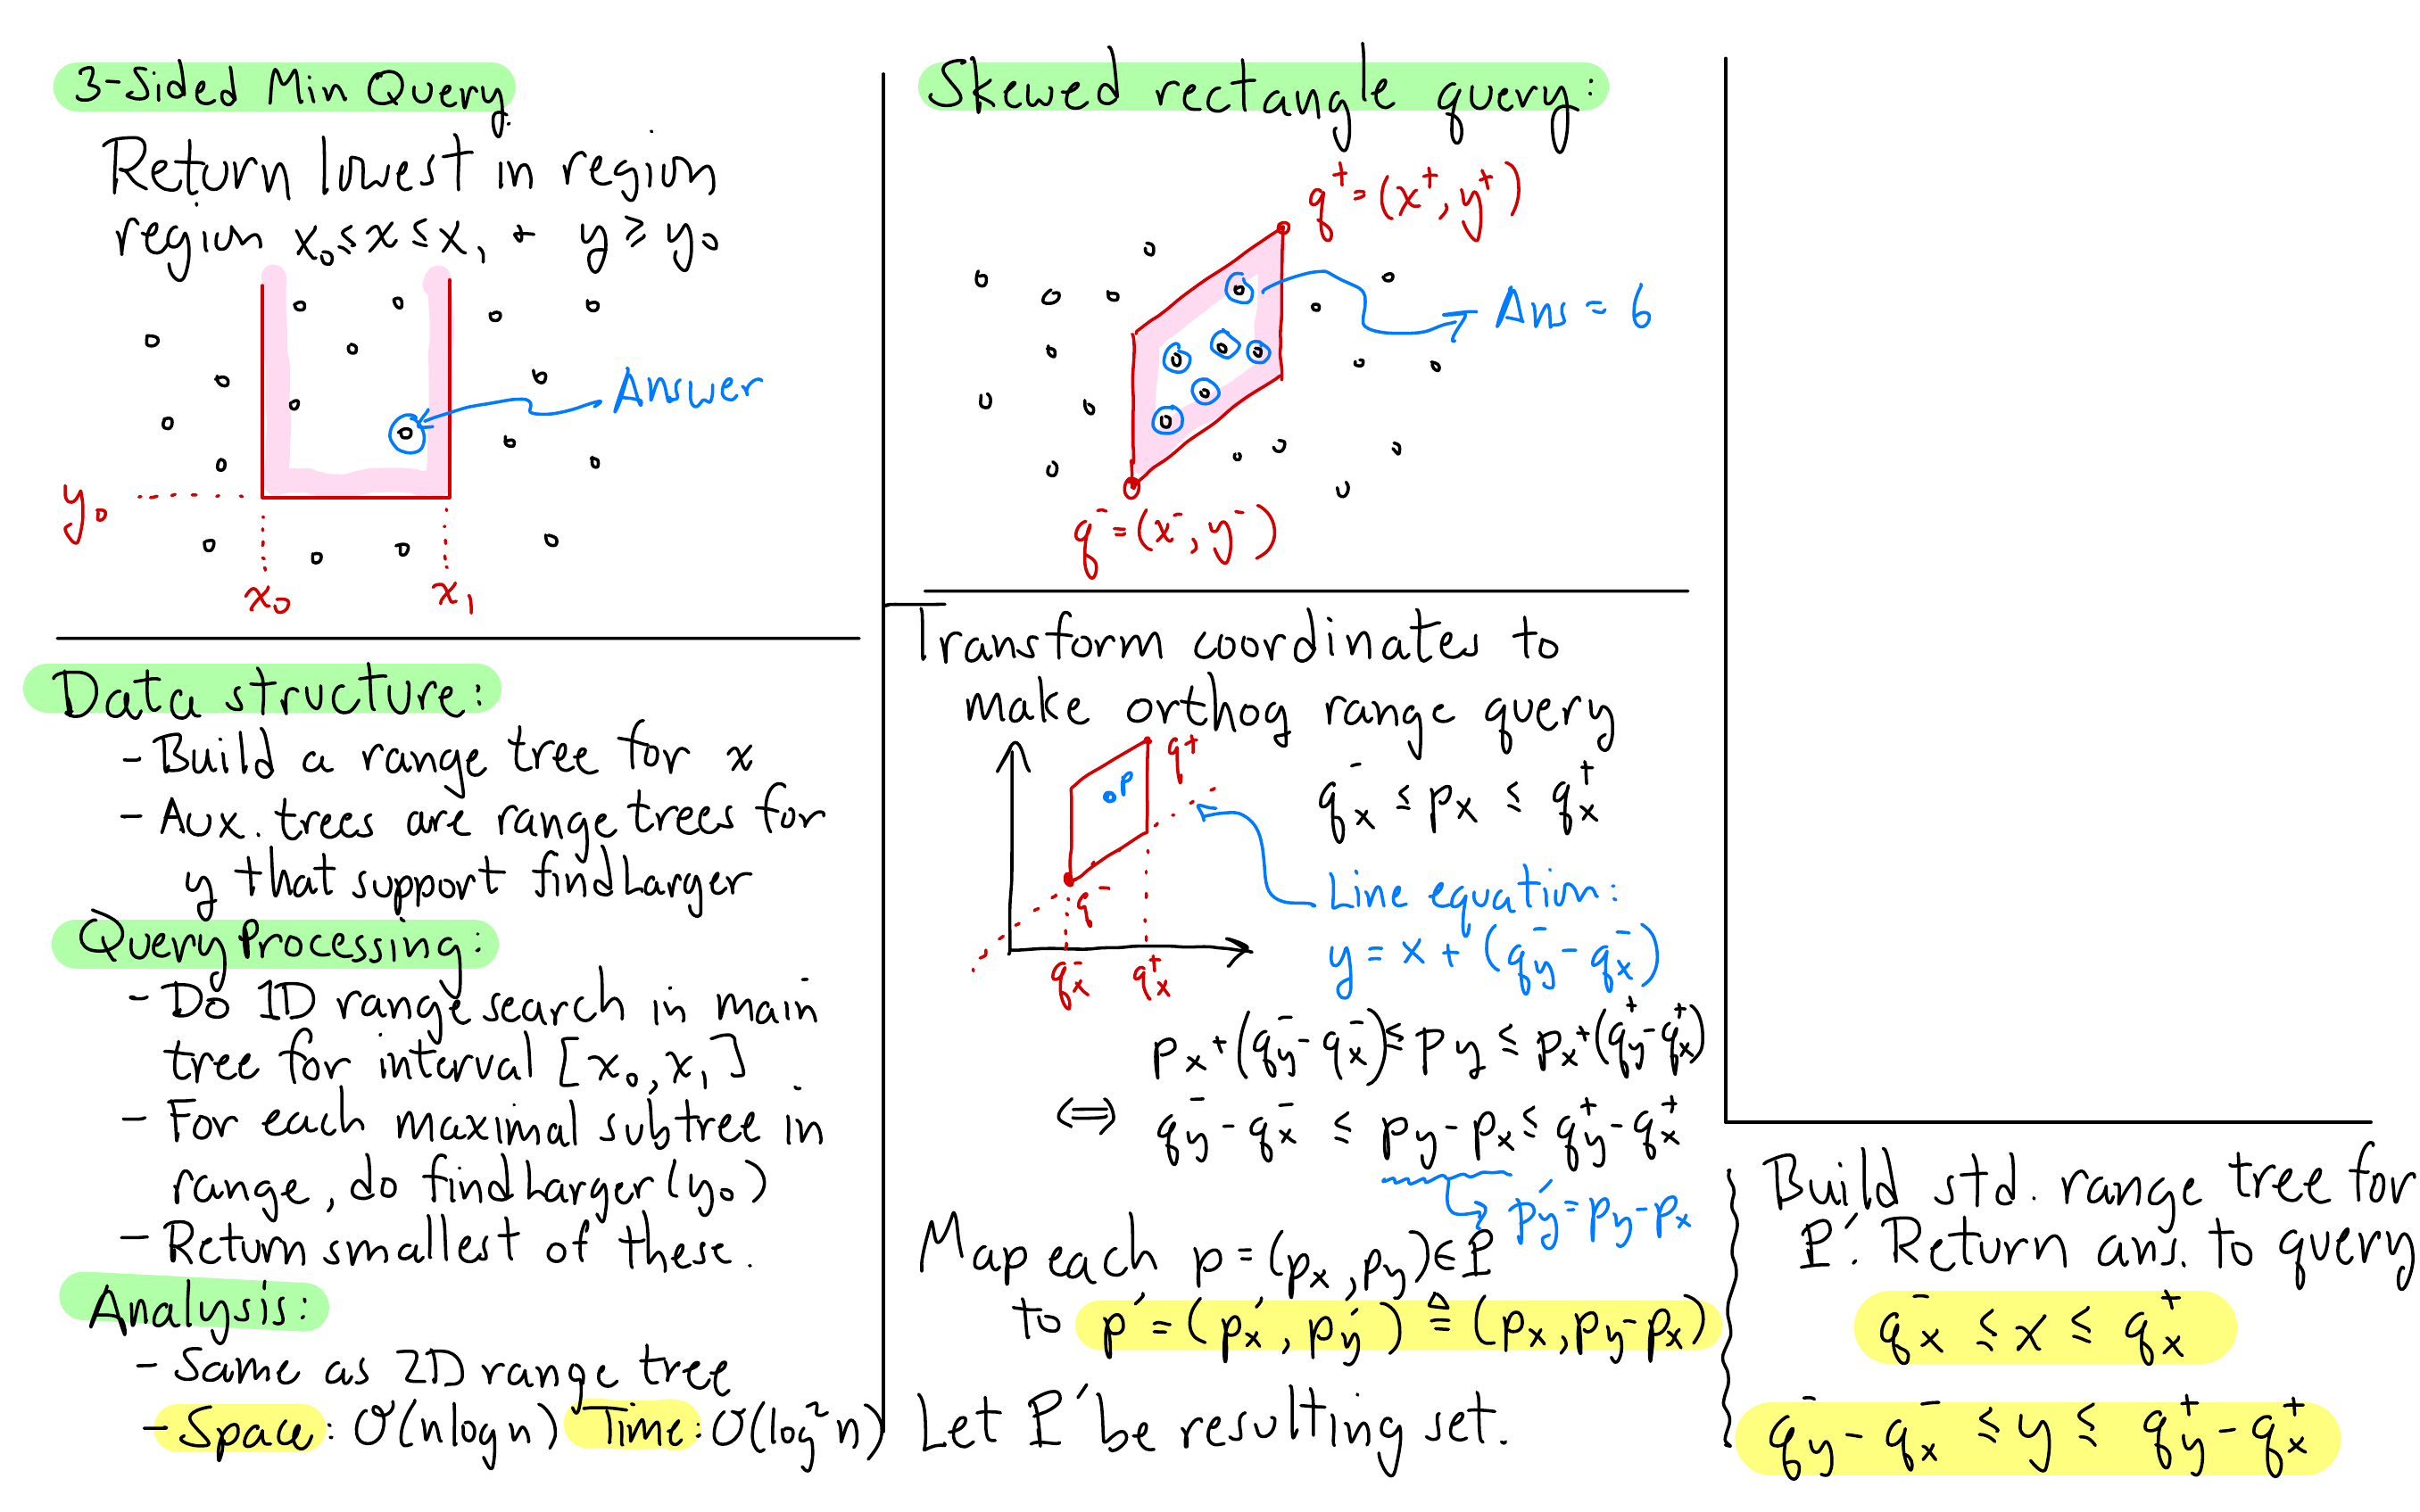 3-Sided Min Query:
Return lowest in region
region x₀ ≤ x ≤ x₁ + y ≥ y₀
Answer
y₀
x₀ x₁
Data structure:
- Build a range tree for x
- Aux. trees are range trees for
y that support findLarger
Query Processing:
- Do 1D range search in main
tree for interval [x₀, x₁]
- For each maximal subtree in
range, do findLarger(y₀)
- Return smallest of these.
Analysis:
- Same as 2D range tree
- Space: O(n log n) Time: O(log² n)
Skewed rectangle query:
q⁺ = (x⁺, y⁺)
Ans = 6
q⁻ = (x⁻, y⁻)
Transform coordinates to
make orthog range query
q⁺
p
q⁻
qₓ⁻ qₓ⁺
qₓ⁻ ≤ pₓ ≤ qₓ⁺
Line equation:
y = x + (q_y⁻ - qₓ⁻)
pₓ + (q_y⁻ - qₓ⁻) ≤ p_y ≤ pₓ + (q_y⁺ - qₓ⁺)
⟺ q_y⁻ - qₓ⁻ ≤ p_y - pₓ ≤ q_y⁺ - qₓ⁺
p_y′ = p_y - pₓ
Map each p = (pₓ, p_y) ∈ P
to p′ = (pₓ′, p_y′) ≜ (pₓ, p_y - pₓ)
Let P′ be resulting set.
Build std. range tree for
P′. Return ans. to query
qₓ⁻ ≤ x ≤ qₓ⁺
q_y⁻ - qₓ⁻ ≤ y ≤ q_y⁺ - qₓ⁺